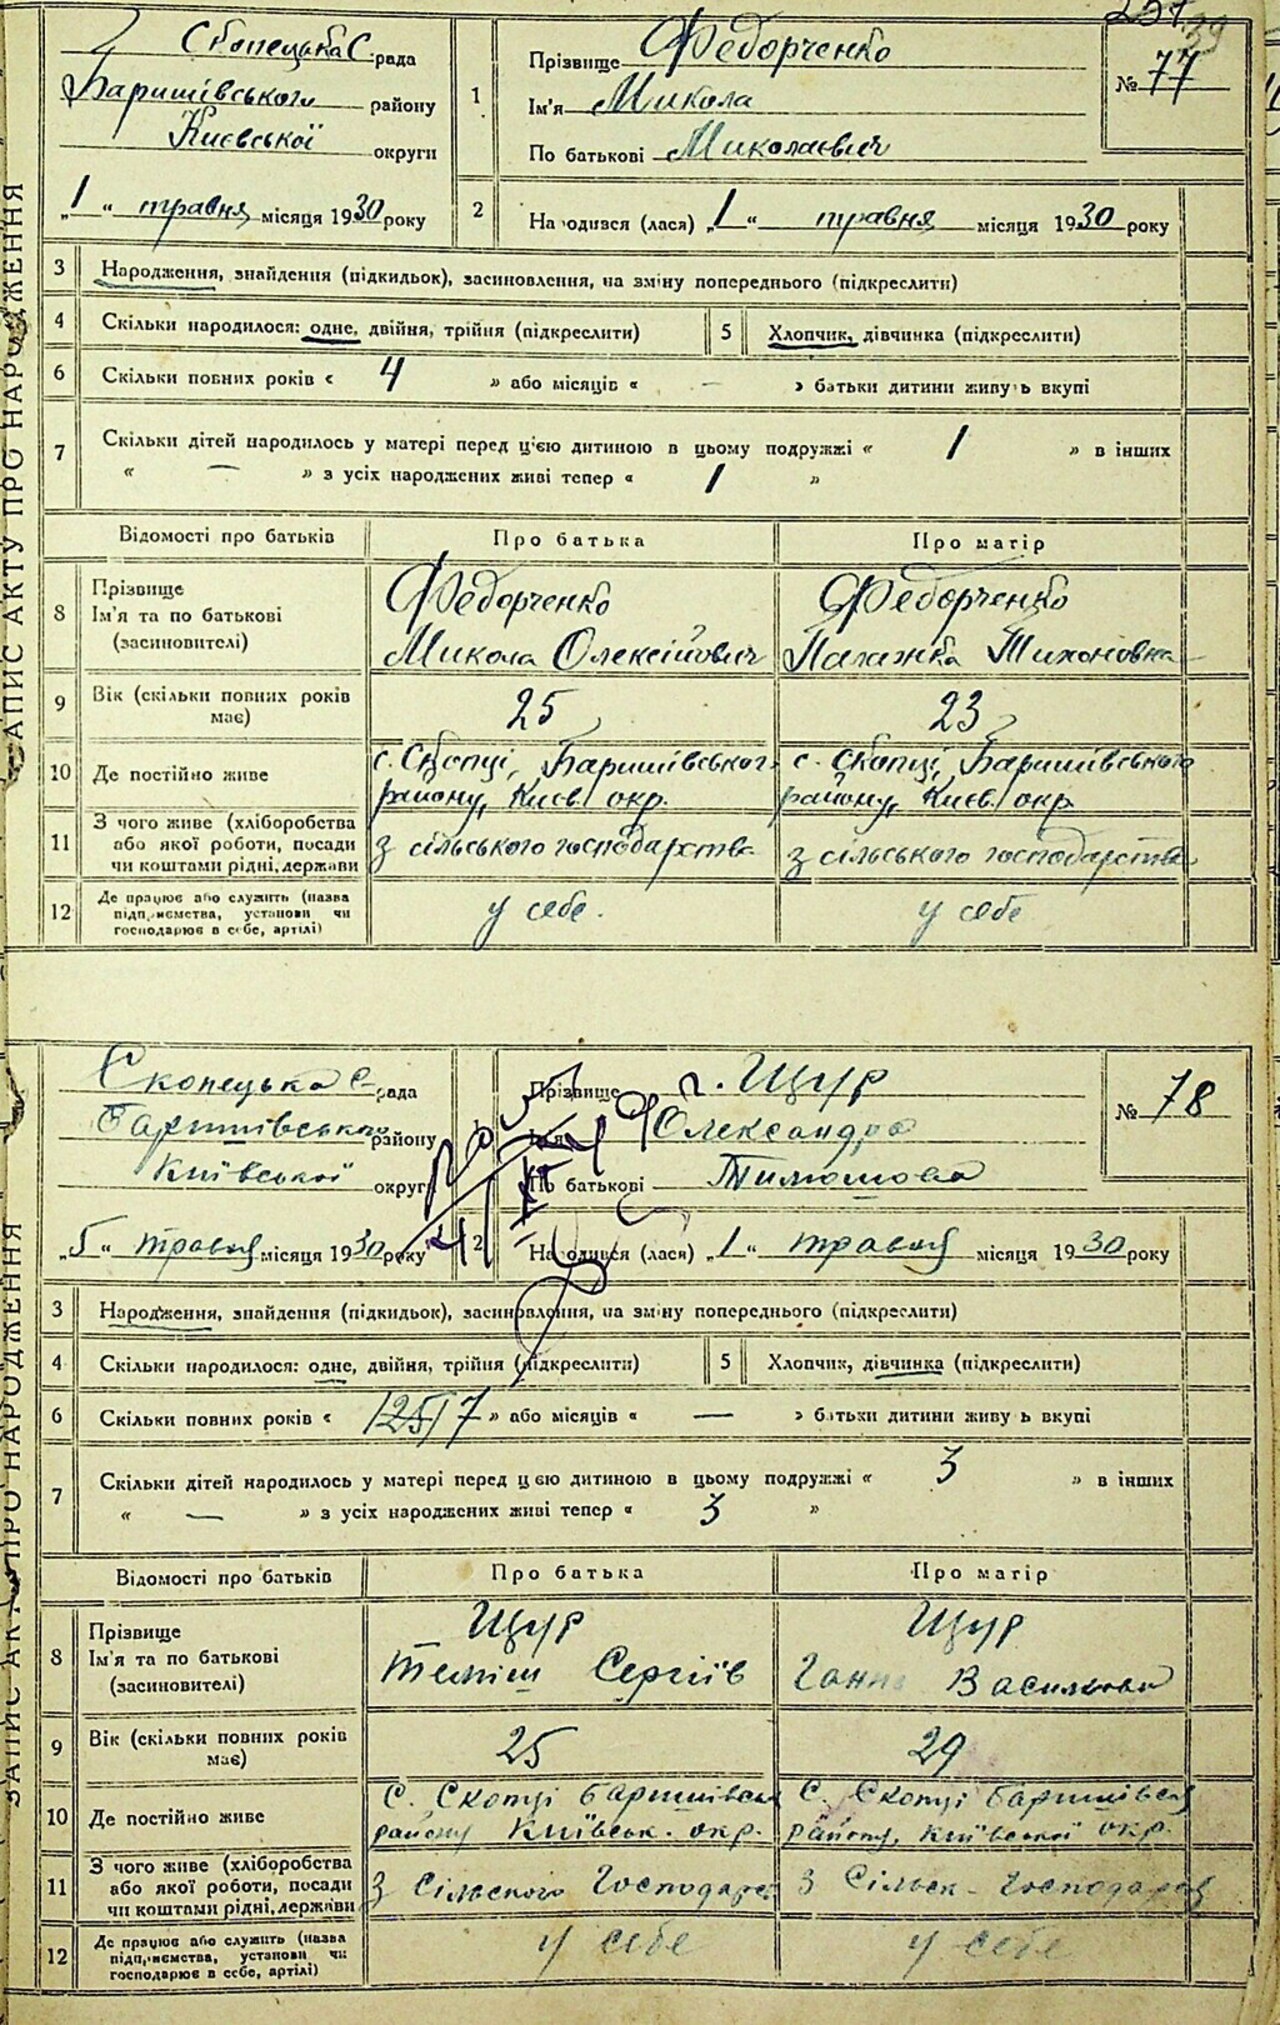 39
Скопецька С. рада
Баришівського району
Києвської округи
„1“ травня місяця 1930 року
1 Прізвище Федорченко
Ім'я Микола
По батькові Миколаєвич
№ 77
2 Народився (лася) „1“ травня місяця 1930 року
ЗАПИС АКТУ ПРО НАРОДЖЕННЯ
3 Народження, знайдення (підкидьок), засиновлення, на зміну попереднього (підкреслити)
4 Скільки народилося: одне, двійня, трійня (підкреслити) 5 Хлопчик, дівчинка (підкреслити)
6 Скільки повних років « 4 » або місяців « — » батьки дитини живуть вкупі
7 Скільки дітей народилось у матері перед цією дитиною в цьому подружжі « 1 » в інших
« — » з усіх народжених живі тепер « 1 »
Відомості про батьків Про батька Про матір
8 Прізвище Ім'я та по батькові (засиновителі)
Федорченко Микола Олексійович
Федорченко Палажка Тихоновна
9 Вік (скільки повних років має) 25 23
10 Де постійно живе
с. Скопці, Баришівського району, Києв. окр.
с. Скопці, Баришівського району, Києв. окр.
11 З чого живе (хліборобства або якої роботи, посади чи коштами рідні, держави
з сільського господарства
з сільського господарства
12 Де працює або служить (назва підприємства, установи чи господарює в себе, артілі)
у себе.
у себе
Скопецька С. рада
Баришівського району
Київської округи
„5“ травня місяця 1930 року
Прізвище Щур
Ім'я Олександра
По батькові Тимошова
№ 78
2 Народився (лася) „1“ травня місяця 1930 року
ЗАПИС АКТУ ПРО НАРОДЖЕННЯ
3 Народження, знайдення (підкидьок), засиновлення, на зміну попереднього (підкреслити)
4 Скільки народилося: одне, двійня, трійня (підкреслити) 5 Хлопчик, дівчинка (підкреслити)
6 Скільки повних років « 7 » або місяців « — » батьки дитини живуть вкупі
7 Скільки дітей народилось у матері перед цією дитиною в цьому подружжі « 3 » в інших
« — » з усіх народжених живі тепер « 3 »
Відомості про батьків Про батька Про матір
8 Прізвище Ім'я та по батькові (засиновителі)
Щур Сергіїв
Щур Ганна
9 Вік (скільки повних років має) 25 29
10 Де постійно живе
С. Скопці Баришівськ району Київськ. окр.
С. Скопці Баришівськ району, Київської окр.
11 З чого живе (хліборобства або якої роботи, посади чи коштами рідні, держави
З Сільского Господарст
З Сільск. Господарст
12 Де працює або служить (назва підприємства, установи чи господарює в себе, артілі)
у себе
у себе